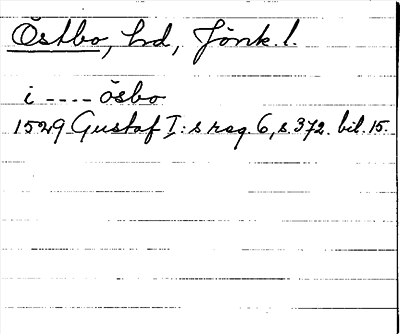 Östbo, hd, Jönk. l.
i ---- ösbo
1529 Gustaf I: s reg. 6, s. 372. bil. 15.